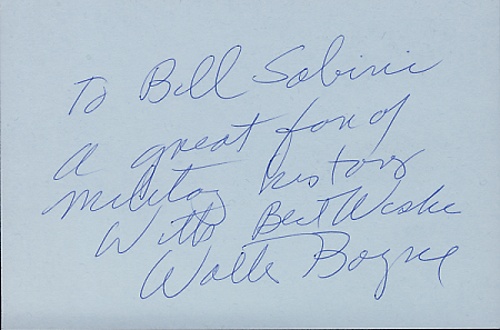 To Bill Sobiric
A great fan of
military history
With Best Wishes
Walter Boyne